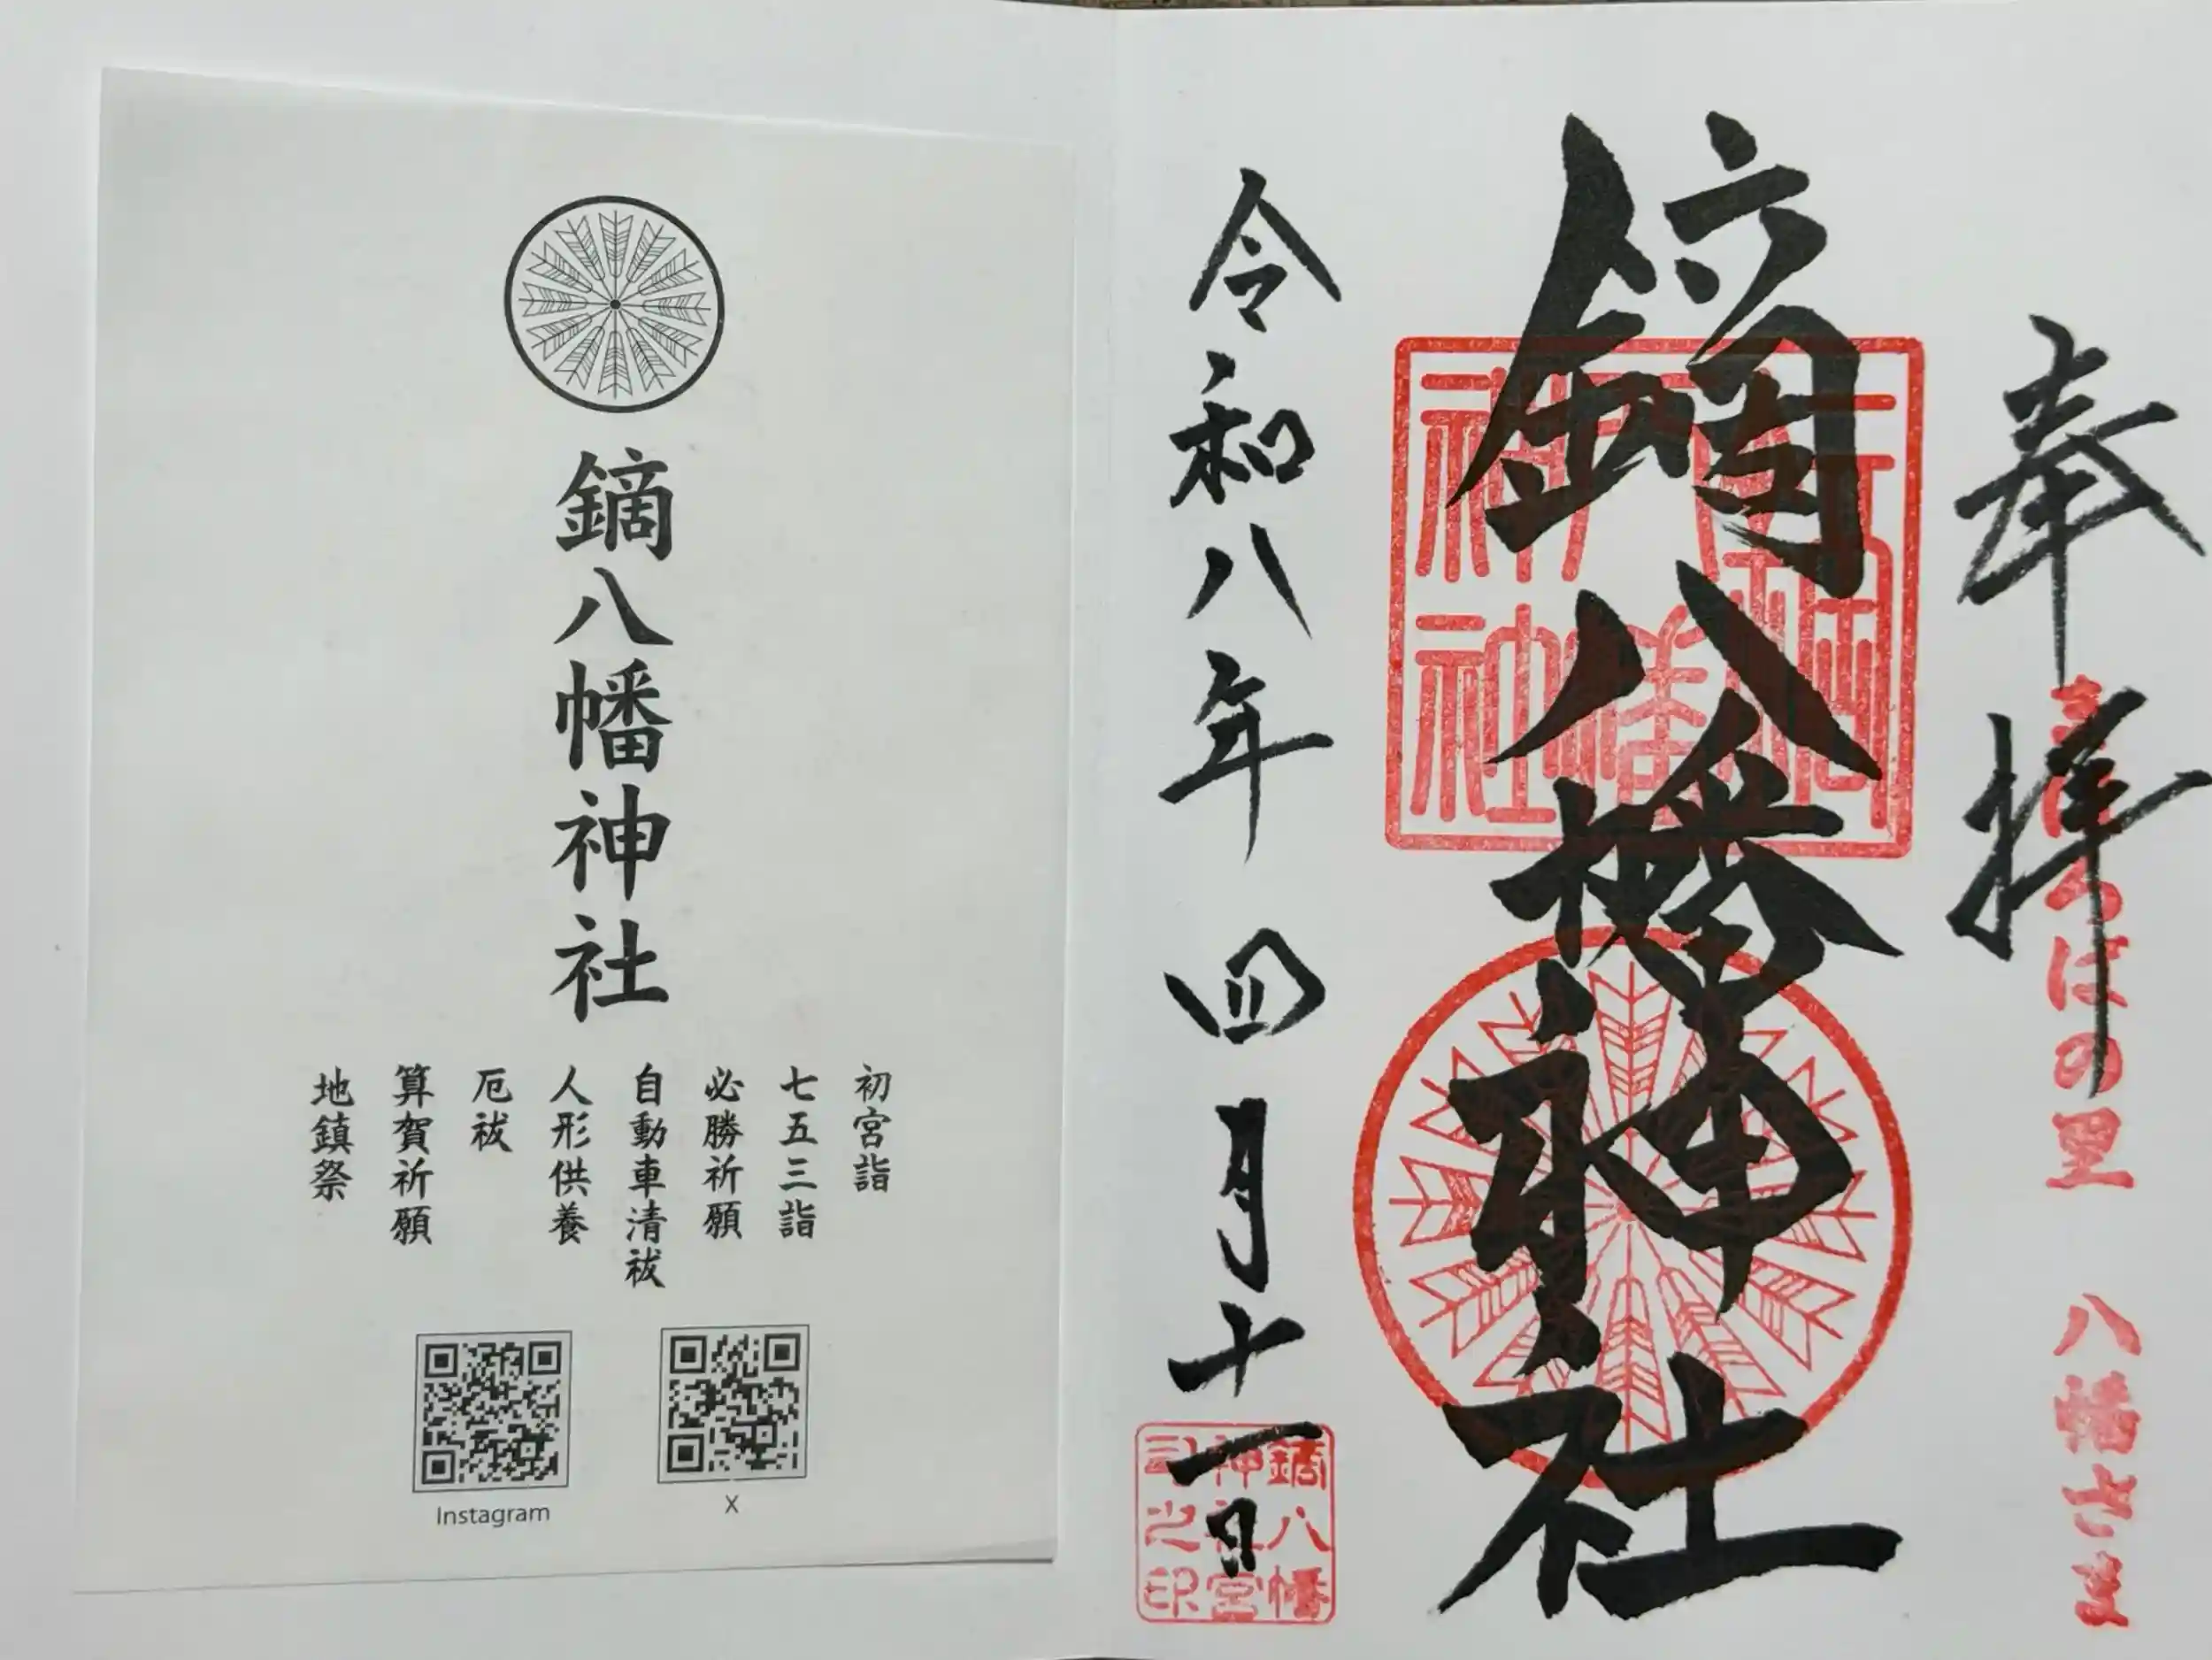 奉拝
ばの里 八幡さま
鏑八幡神社
令和八年四月十一日
鏑八幡
神社宮
司之印
鏑八幡神社
初宮詣
七五三詣
必勝祈願
自動車清祓
人形供養
厄祓
算賀祈願
地鎮祭
Instagram
X